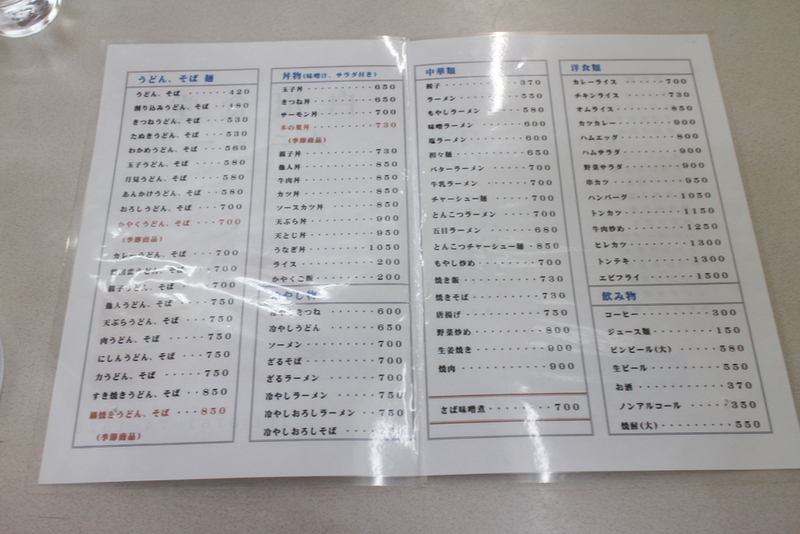 うどん、そば 麺
うどん、そば ・・・・・420
割り込みうどん、そば ・・480
きつねうどん、そば ・・・530
たぬきうどん、そば ・・・530
わかめうどん、そば ・・・560
玉子うどん、そば ・・・・580
月見うどん、そば ・・・・580
あんかけうどん、そば ・・・580
おろしうどん、そば ・・・・700
かやくうどん、そば ・・・700
(季節商品)
カレーうどん、そば ・・・700
うどん、そば ・・・700
親子うどん、そば ・・・・700
他人うどん、そば ・・・・750
天ぷらうどん、そば ・・・750
肉うどん、そば ・・・・・750
にしんうどん、そば ・・・750
力うどん、そば ・・・・・750
すき焼きうどん、そば ・・850
鍋焼きうどん、そば ・・・850
(季節商品)
丼物(味噌汁、サラダ付き)
玉子丼 ・・・・・・・・・650
きつね丼 ・・・・・・・・650
サーモン丼 ・・・・・・・700
木の葉丼 ・・・・・・・・730
(季節商品)
親子丼 ・・・・・・・・・730
他人丼 ・・・・・・・・・850
牛肉丼 ・・・・・・・・・850
カツ丼 ・・・・・・・・・850
ソースカツ丼 ・・・・・・850
天ぷら丼 ・・・・・・・・900
天とじ丼 ・・・・・・・・950
うなぎ丼 ・・・・・・・・1050
ライス ・・・・・・・・・200
かやくご飯 ・・・・・・・200
冷やし物
冷やしきつね ・・・・・・600
冷やしうどん ・・・・・・650
ソーメン ・・・・・・・・700
ざるそば ・・・・・・・・700
ざるラーメン ・・・・・・700
冷やしラーメン ・・・・・750
冷やしおろしラーメン ・・・750
冷やしおろしそば ・・・・・750
中華類
餃子 ・・・・・・・・・・370
ラーメン ・・・・・・・・550
もやしラーメン ・・・・・580
味噌ラーメン ・・・・・・600
塩ラーメン ・・・・・・・600
担々麺 ・・・・・・・・・650
バターラーメン ・・・・・700
牛乳ラーメン ・・・・・・700
チャーシュー麺 ・・・・・700
とんこつラーメン ・・・・700
五目ラーメン ・・・・・・680
とんこつチャーシュー麺 ・850
もやし炒め ・・・・・・・700
焼き飯 ・・・・・・・・・730
焼きそば ・・・・・・・・730
唐揚げ ・・・・・・・・・750
野菜炒め ・・・・・・・・800
生姜焼き ・・・・・・・・900
焼肉 ・・・・・・・・・・900
さば味噌煮 ・・・・・・・・700
洋食類
カレーライス ・・・・・・700
チキンライス ・・・・・・730
オムライス ・・・・・・・850
カツカレー ・・・・・・・900
ハムエッグ ・・・・・・・800
ハムサラダ ・・・・・・・900
野菜サラダ ・・・・・・・900
串カツ ・・・・・・・・・950
ハンバーグ ・・・・・・・1050
トンカツ ・・・・・・・・1150
牛肉炒め ・・・・・・・・1250
ヒレカツ ・・・・・・・・1300
トンテキ ・・・・・・・・1300
エビフライ ・・・・・・・1500
飲み物
コーヒー ・・・・・・・・300
ジュース類 ・・・・・・・150
ビンビール(大) ・・・・・580
生ビール ・・・・・・・・550
お酒 ・・・・・・・・・・370
ノンアルコール ・・・・・350
焼酎(大) ・・・・・・・・550